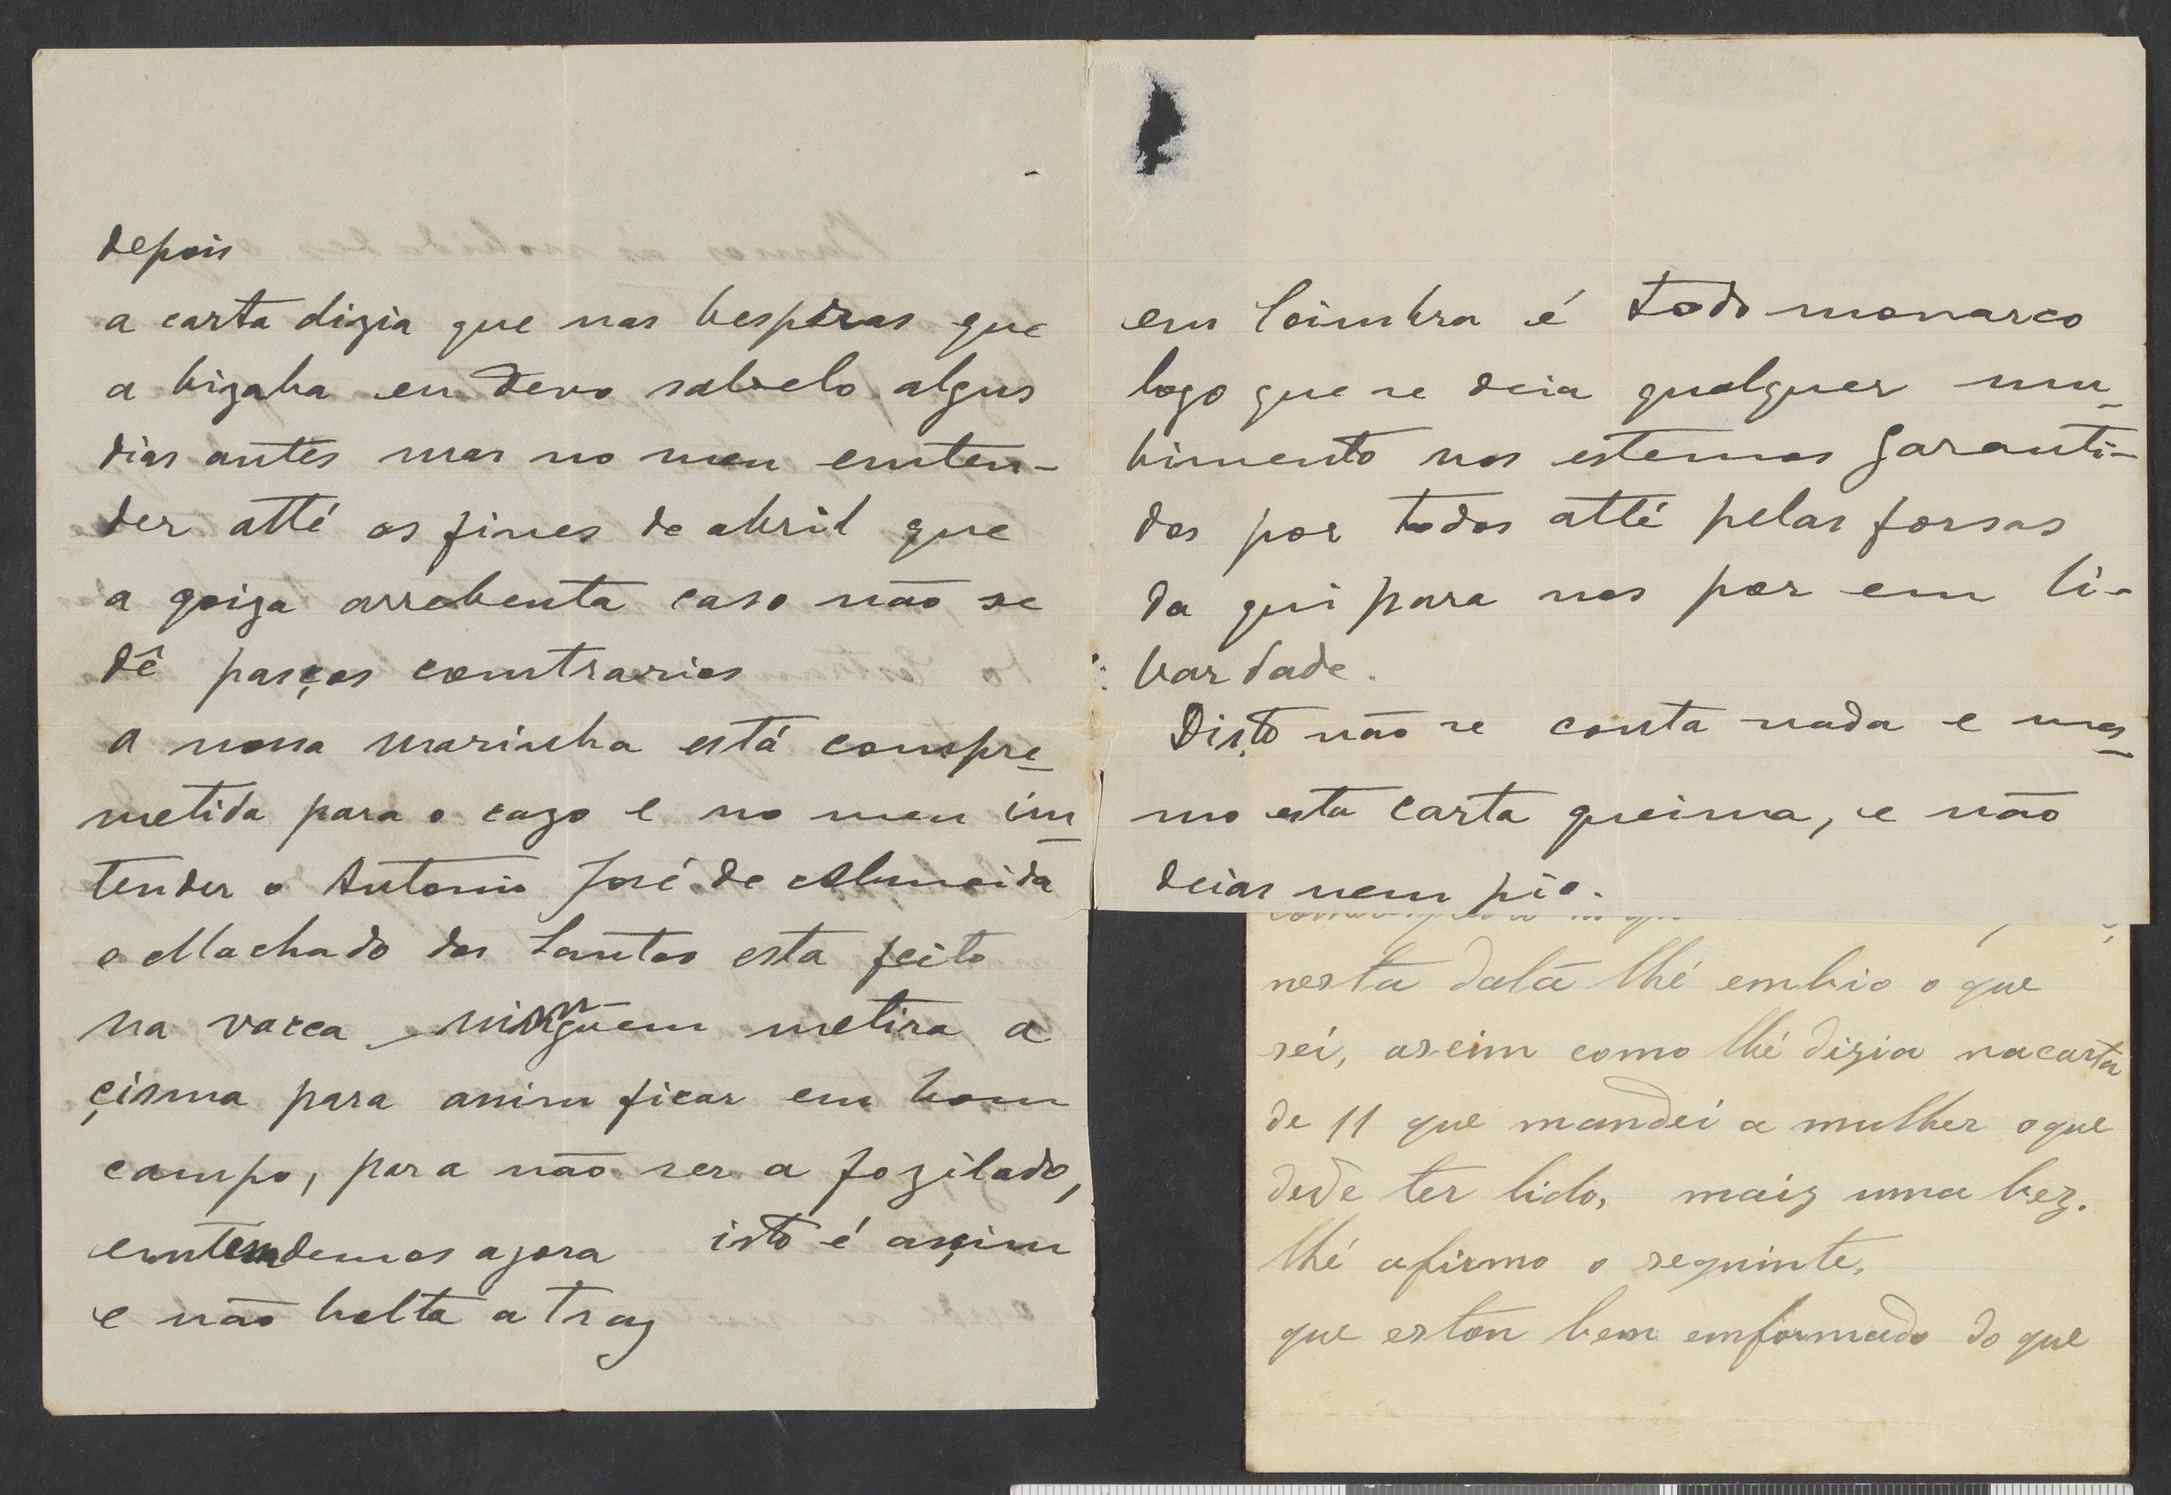 depois
a carta dizia que nas besperas que
a bizaba eu devo sabelo algus
dias antes mas no meu emten-
der atté os fines de abril que
a goiza arrebenta caso não se
dê pasços comtrarios
a nossa marinha está compre-
metida para o cazo e no meu im-
tender o Antonio José de Almeida
e Machado dos Santos esta feito
na varca ninguem metira a
çisma para asim ficar em bom
campo, para não ser a fozilado,
emtendemos agora isto é asçim
e não bolta a traz
em Coimbra é todo monarco
logo que se deia qualquer mu-
bimento nos estemos garanti-
dos por todos atté pelas forsas
da qui para nos por em li-
bardade.
Disto não se conta nada e mes-
mo esta carta queima, e não
deias nem pio.
nesta datá lhé embio o que
sei, aseim como lhé dizia nacarta
de 11 que mandei a mulher oque
dede ter lido, maiz uma bez.
lhé afirmo o seguinte,
que estou bem emformado do que